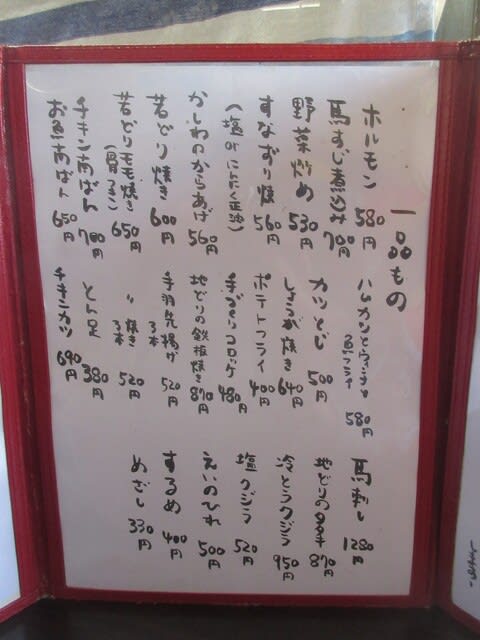 一品もの
ホルモン 580円
馬すじ煮込み 700円
野菜炒め 530円
すなずり焼 560円
(塩orにんにく正油)
かしわのからあげ 560円
若どり焼き 600円
若どりモモ焼き 650円
(骨るこ)
チキン南ばん 700円
お魚南ばん 650円
ハムカツと
580円
カツとじ 500円
しょうが焼き 640円
ポテトフライ 400円
手づくりコロッケ 480円
地どりの鉄板焼き 870円
手羽先揚げ 3本 520円
〃 焼き 3本 520円
とん足 380円
チキンカツ 690円
馬刺し 1280円
地どりのタタキ 870円
冷とうクジラ 950円
塩クジラ 520円
えいのひれ 500円
するめ 400円
めざし 330円